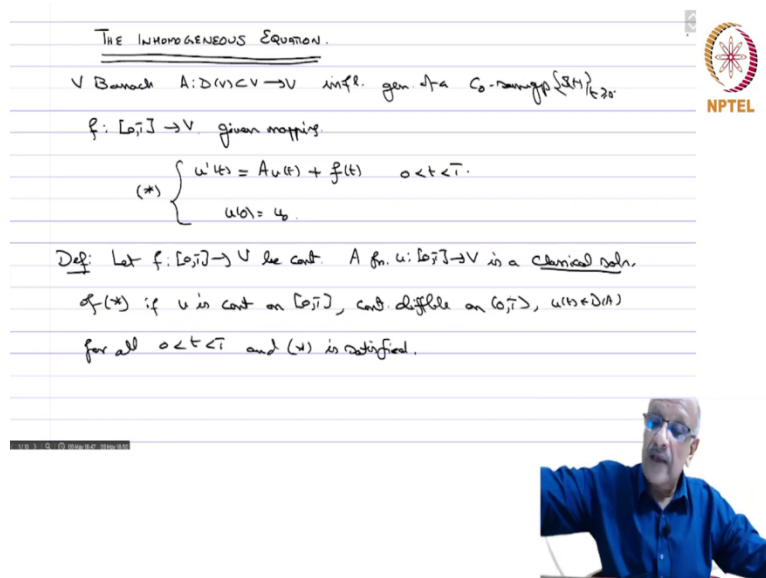 THE INHOMOGENEOUS EQUATION.
V Banach A: D(A) ⊂ V → V infl. gen. of a C₀-semigp {S(t)}_{t≥0}.
NPTEL
f: [0,T] → V given mapping.
(*) { u'(t) = Au(t) + f(t) 0<t<T.
u(0) = u₀.
Def: Let f: [0,T] → V be cont. A fn. u: [0,T] → V is a classical soln.
of (*) if u is cont on [0,T], cont. diffble on (0,T), u(t) ∈ D(A)
for all 0<t<T and (*) is satisfied.